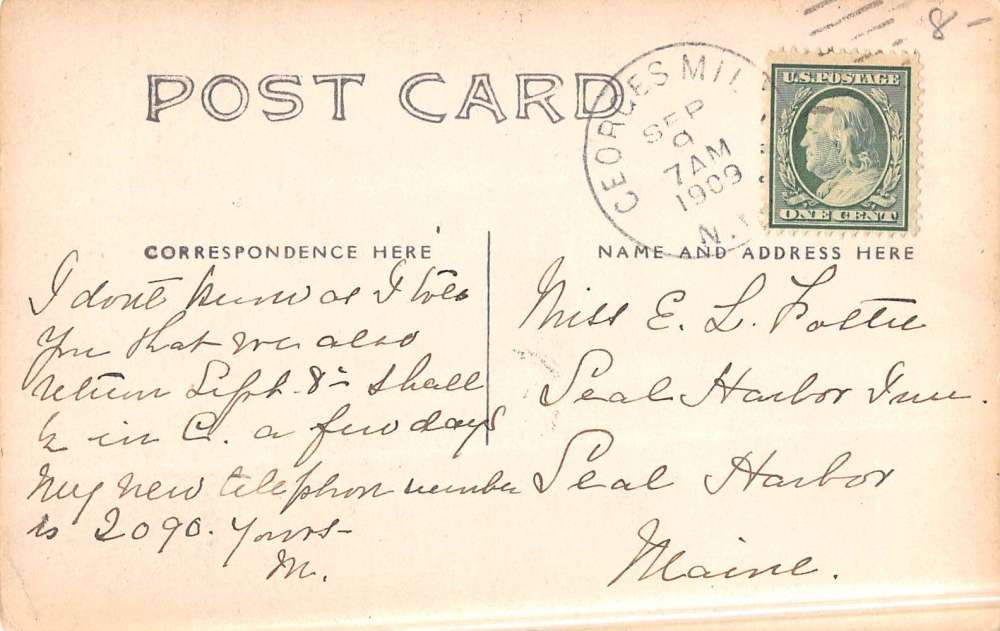 POST CARD
GEORGES MIL
SEP
9
7 AM
1909
N.
U.S. POSTAGE
ONE CENT
8-
CORRESPONDENCE HERE
I don't know as I told
you that we also
return Sept. 8- shall
be in C. a few days
My new telephon number
is 2090. Yours-
M.
NAME AND ADDRESS HERE
Miss E. L.
Seal Harbor Inn.
Seal Harbor
Maine.